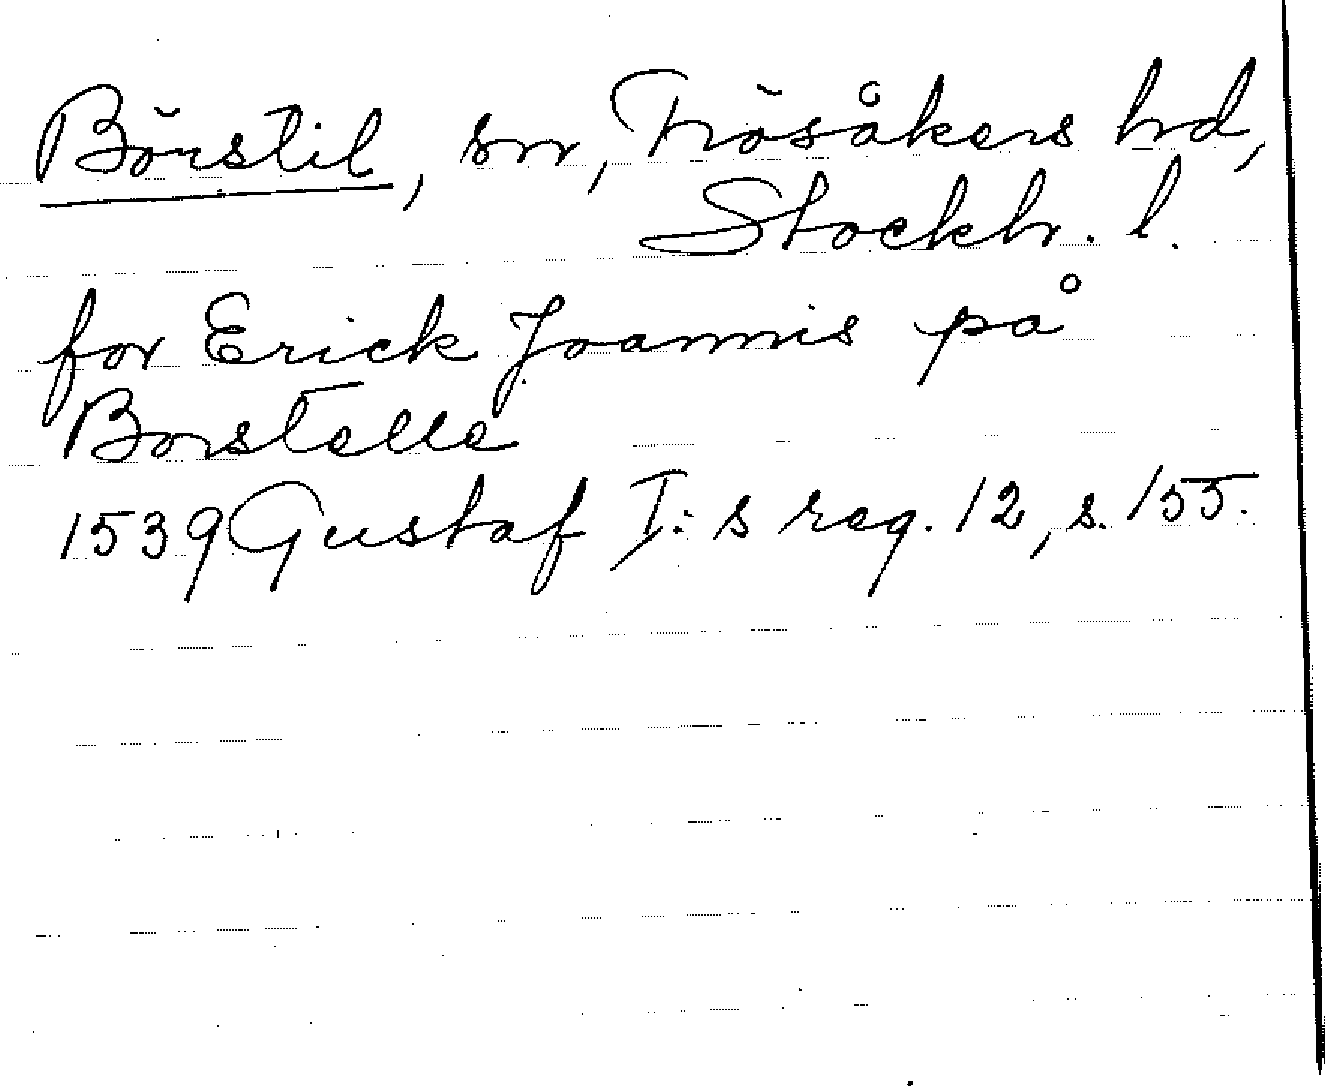 Börstil, sn, Frösåkers hd,
Stockh. l.
for Erick Joannis på
Borstelle
1539 Gustaf I:s reg. 12, s. 155.